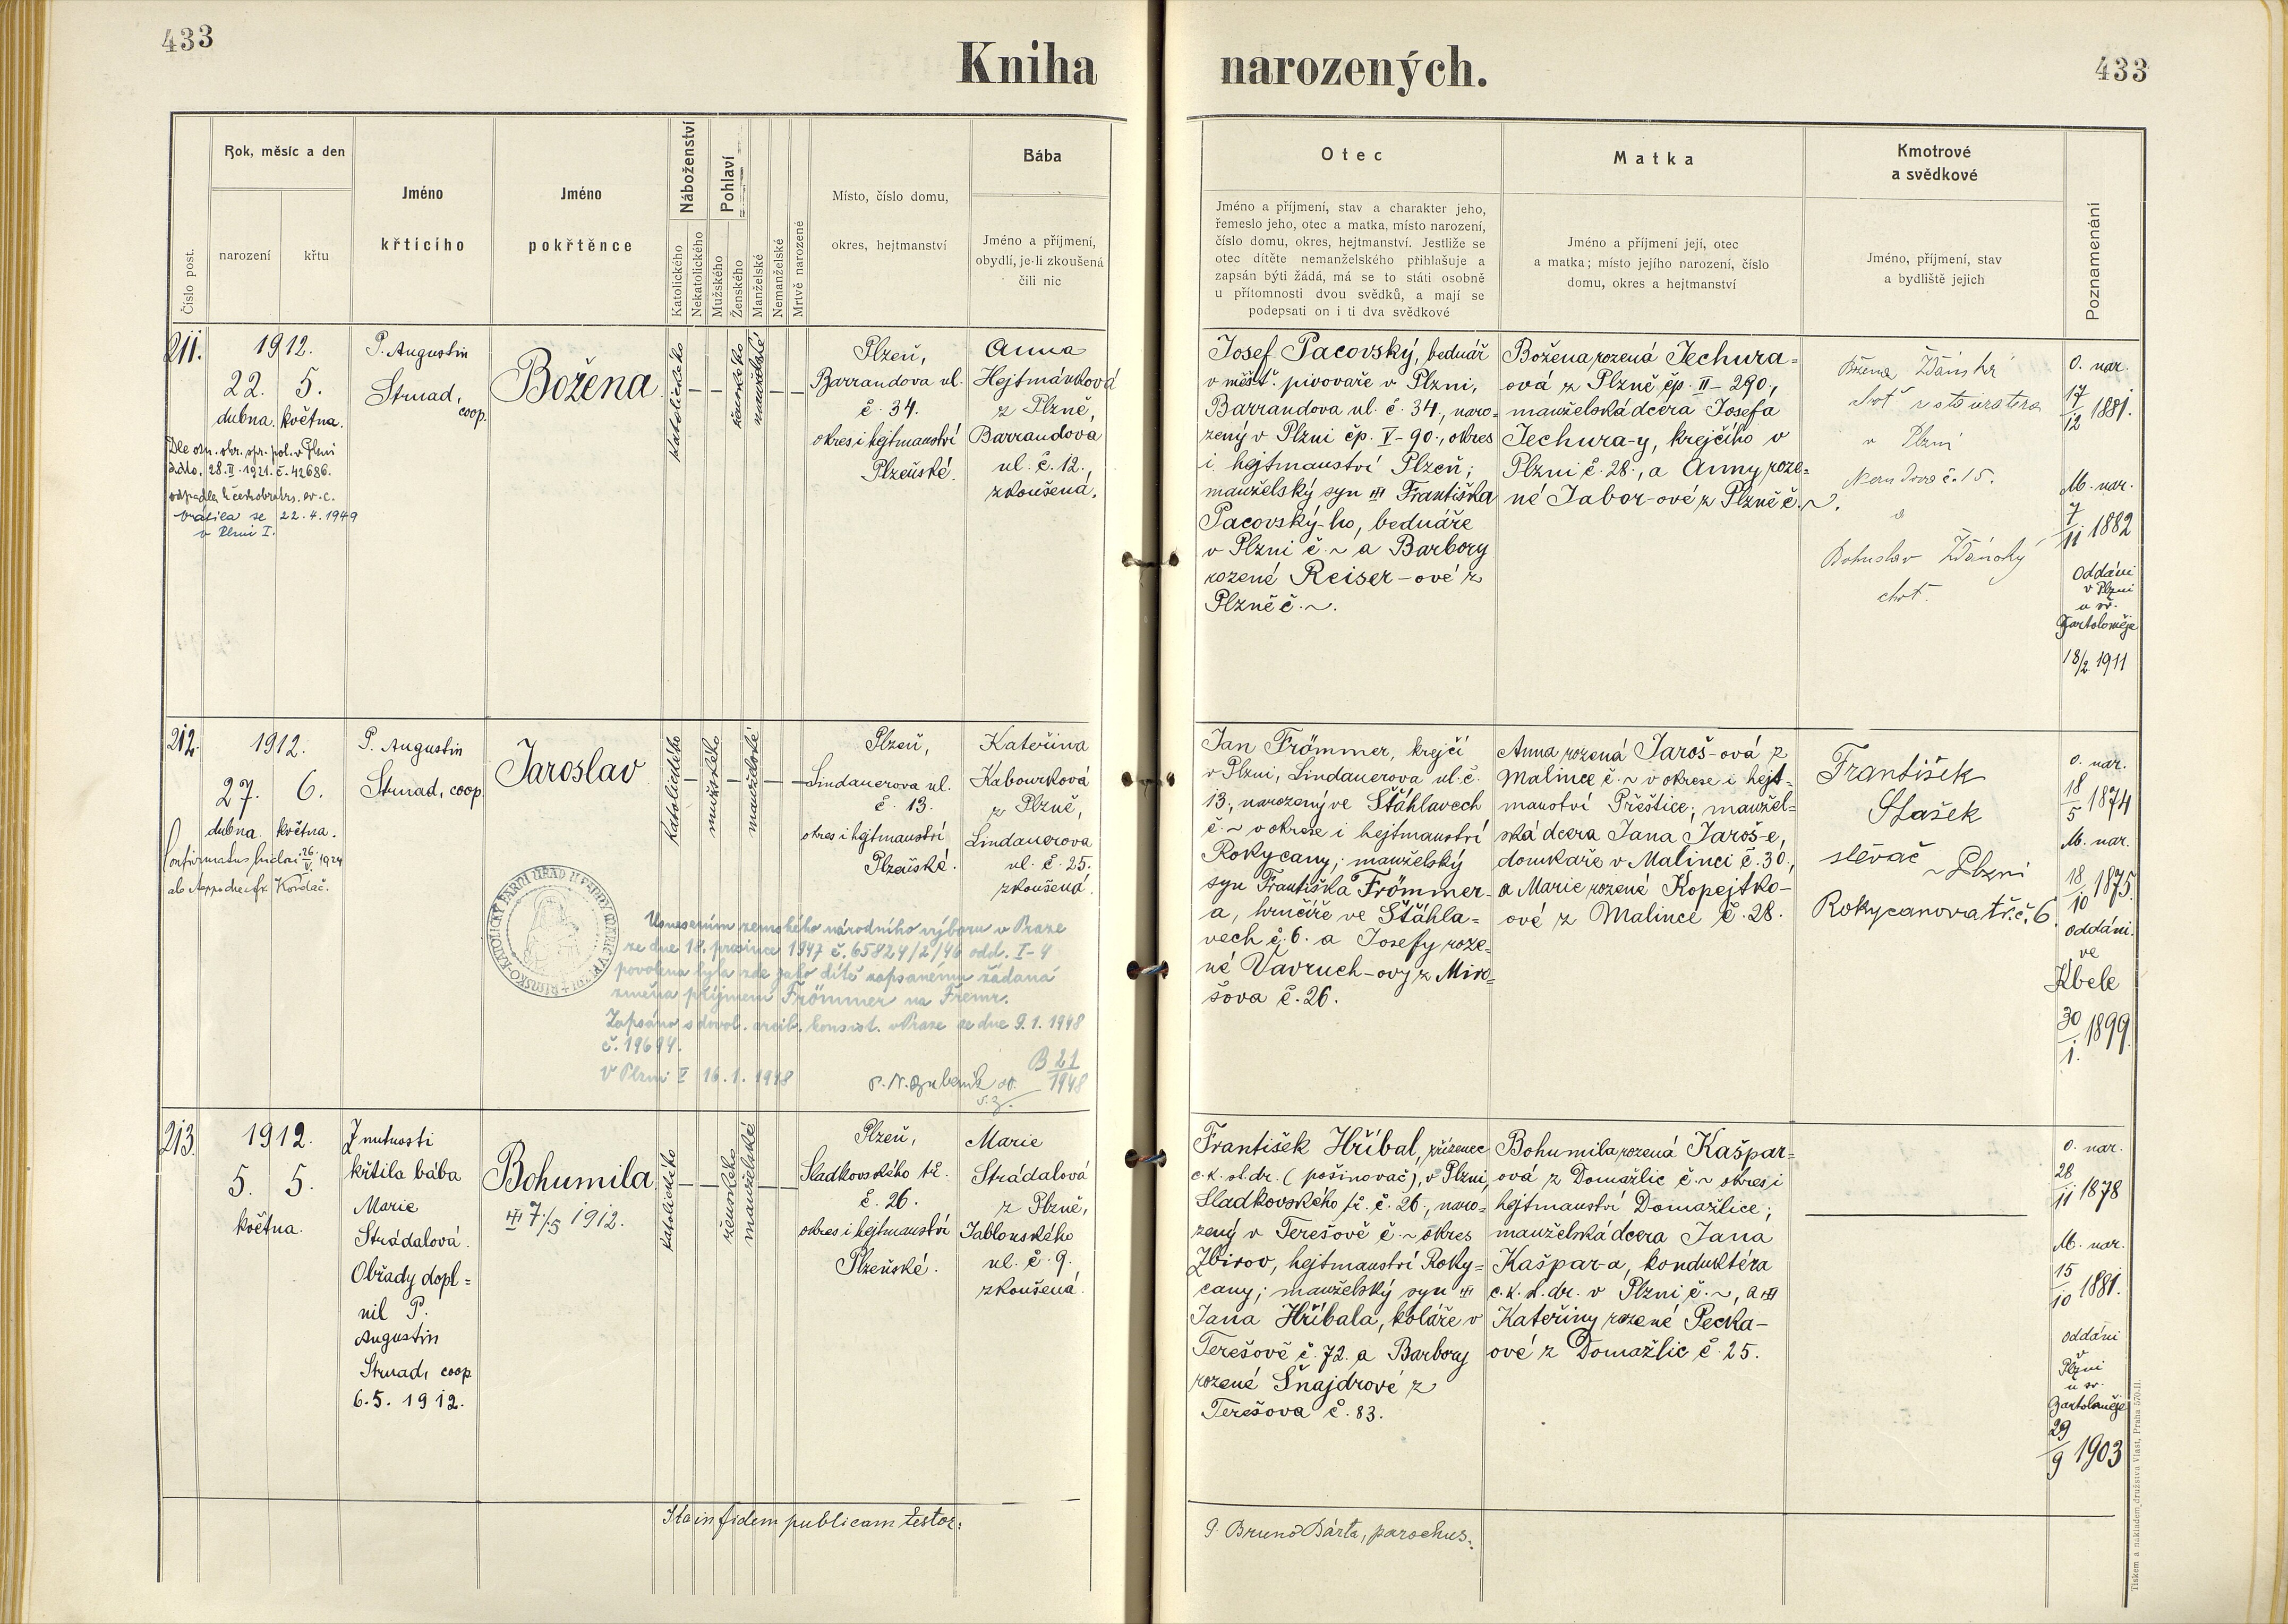 433
433
Kniha narozených.
Číslo post.
Rok, měsíc a den
narození
křtu
Jméno
křticího
Jméno
pokřtěnce
Náboženství
Katolického
Nekatolického
Pohlaví
Mužského
Ženského
Manželské
Nemanželské
Mrtvě narozené
Místo, číslo domu,
okres, hejtmanství
Bába
Jméno a příjmení,
obydlí, je-li zkoušená
čili nic
Otec
Jméno a příjmení, stav a charakter jeho,
řemeslo jeho, otec a matka, místo narození,
číslo domu, okres, hejtmanství. Jestliže se
otec dítěte nemanželského přihlašuje a
zapsán býti žádá, má se to státi osobně
u přítomnosti dvou svědků, a mají se
podepsati on i ti dva svědkové
Matka
Jméno a příjmení její, otec
a matka; místo jejího narození, číslo
domu, okres a hejtmanství
Kmotrové
a svědkové
Jméno, příjmení, stav
a bydliště jejich
Poznamenání
211.
1912.
22. 5.
dubna. května.
Dle ozn. obr. spr. pol. v Plzni
ddto. 28.II.1921.č.42686.
odpadla k českobratrs. ev. c.
Vrátila se 22.4.1949
v Plzni I.
P. Augustin
Strnad,
coop.
Božena
katolického
ženského
manželské
Plzeň,
Barrandova ul.
č. 34.
okres i hejtmanství
Plzeňské.
Anna
Hejtmánková
z Plzně,
Barrandova
ul. č. 12.,
zkoušená.
Josef Pacovský, bednář
v měšť. pivovaře v Plzni,
Barrandova ul. č. 34., naro-
zený v Plzni čp. V-90., okres
i hejtmanství Plzeň;
manželský syn Františka
Pacovský-ho, bednáře
v Plzni č. ~ a Barbory
rozené Reiser-ové z
Plzně č. ~.
Božena rozená Jechura=
ová z Plzně čp. II-290.,
manželská dcera Josefa
Jechura-y, krejčího v
Plzni č. 28., a Anny roze=
né Tabor-ové z Plzně č. ~.
Božena Ždánská
choť restauratera
v Plzni
č. 15.
a
Bohuslav Ždánský
choť.
O. nar.
17/12 1881.
M. nar.
7/11 1882
Oddáni
v Plzni
u sv.
Bartoloměje
18/2 1911
212.
1912.
27. 6.
dubna. května.
26. 1924
Kordač.
P. Augustin
Strnad, coop.
Jaroslav
katolického
mužského
manželské
Plzeň,
Lindauerova ul.
č. 13.
okres i hejtmanství
Plzeňské.
Kateřina
Kabourková
z Plzně,
Lindauerova
ul. č. 25.
zkoušená.
Usnesením zemského národního výboru v Praze
ze dne 18. prosince 1947 č. 65824/2/46 odd. I-4
povolena byla zde jako dítě zapsanému žádaná
změna příjmení Frömmer na Fremr.
Zapsáno s dovol. arcib. konsist. v Praze ze dne 9.1.1948
č. 19694.
V Plzni I 16.1.1948
B 21/1948
Jan Frömmer, krejčí
v Plzni, Lindauerova ul. č.
13., narozený ve Šťáhlavech
č. ~ v okrese i hejtmanství
Rokycany; manželský
syn Františka Frömmer-
a, hrnčíře ve Šťáhla=
vech č. 6. a Josefy roze=
né Vavruch-ovy z Miro=
šova č. 26.
Anna rozená Jaroš-ová z
Malince č. ~ v okrese i hejt-
manství Přeštice; manžel=
ská dcera Jana Jaroš-e,
domkaře v Malinci č. 30.,
a Marie rozené Kopejtko-
ové z Malince č. 28.
František
Stašek
slévač
v Plzni
Rokycanova tř. č. 6
O. nar.
18/5 1874
M. nar.
18/10 1875.
Oddáni.
ve
Kbele
30/1. 1899.
213.
1912.
5. 5.
května.
Z nutnosti
křtila bába
Marie
Strádalová.
Obřady dopl=
nil P.
Augustin
Strnad, coop
6.5. 1912.
Bohumila
7/5 1912.
katolického
ženského
manželské
Plzeň,
Sladkovského tř.
č. 26.
okres i hejtmanství
Plzeňské.
Marie
Strádalová
z Plzně,
Jablonského
ul. č. 9.
zkoušená.
František Hříbal, zřízenec
c.k. st. dr. (pošinovač), v Plzni,
Sladkovského tř. č. 26., naro=
zený v Terešově č. ~ okres
Zbirov, hejtmanství Roky=
cany; manželský syn
Jana Hříbala, koláře v
Terešově č. 72. a Barbory
rozené Šnajdrové z
Terešova č. 83.
Bohumila rozená Kašpar=
ová z Domažlic č. ~ okres i
hejtmanství Domažlice;
manželská dcera Jana
Kašpar-a, konduktéra
c.k. st. dr. v Plzni č. ~, a
Kateřiny rozené Pecka-
ové z Domažlic č. 25.
O. nar.
28/11 1878
M. nar.
15/10 1881.
Oddáni
v
Plzni
u sv.
Bartoloměje
29/9 1903
Ita in fidem publicam testor:
P. Bruno Bárta, parochus.
Tiskem a nákladem družstva Vlast, Praha 570-II.